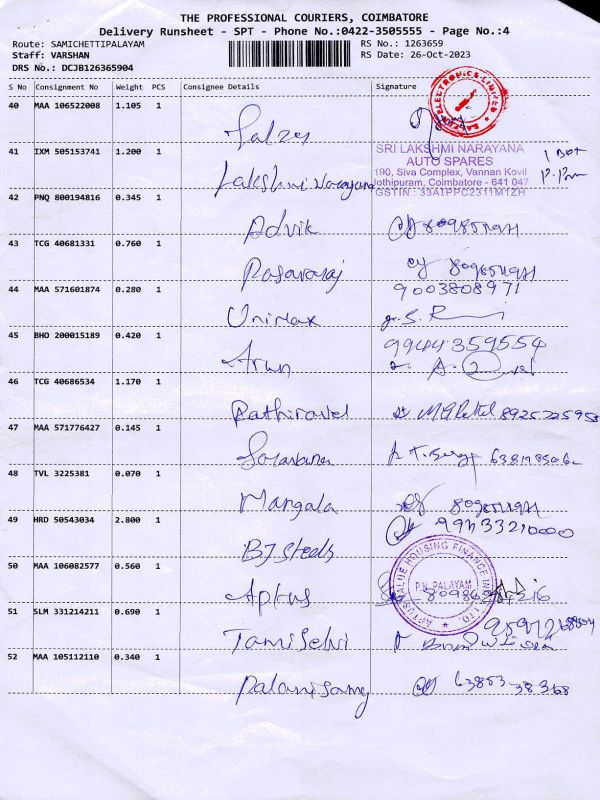 THE PROFESSIONAL COURIERS, COIMBATORE
Delivery Runsheet - SPT - Phone No.:0422-3505555 - Page No.:4
Route: SAMICHETTIPALAYAM
Staff: VARSHAN
DRS No.: DCJB126365904
RS No.: 1263659
RS Date: 26-Oct-2023
S No Consignment No Weight PCS Consignee Details Signature
40 MAA 106522008 1.105 1
ELECTRONICS LIMITED
41 IXM 505153741 1.200 1 Lakshmi Narayana
SRI LAKSHMI NARAYANA
AUTO SPARES
190, Siva Complex, Vannan Kovil
Jothipuram, Coimbatore - 641 047
GSTIN : 33AIPPC2311M1ZH
1 Box
42 PNQ 800194816 0.345 1 Advik
43 TCG 40681331 0.760 1
44 MAA 571601874 0.280 1 Unimax 9003808971
45 BHO 200015189 0.420 1 Arun 9944359554
46 TCG 40686534 1.170 1 Kathiravel
47 MAA 571776427 0.145 1
48 TVL 3225381 0.070 1 Mangala
49 HRD 50543034 2.800 1 BJ Steels
50 MAA 106082577 0.560 1 Aptus
APTUS VALUE HOUSING FINANCE INDIA LTD.
P.N. PALAYAM
51 SLM 331214211 0.690 1 Tamilselvi
52 MAA 105112110 0.340 1 Palanisamy 63853 38368